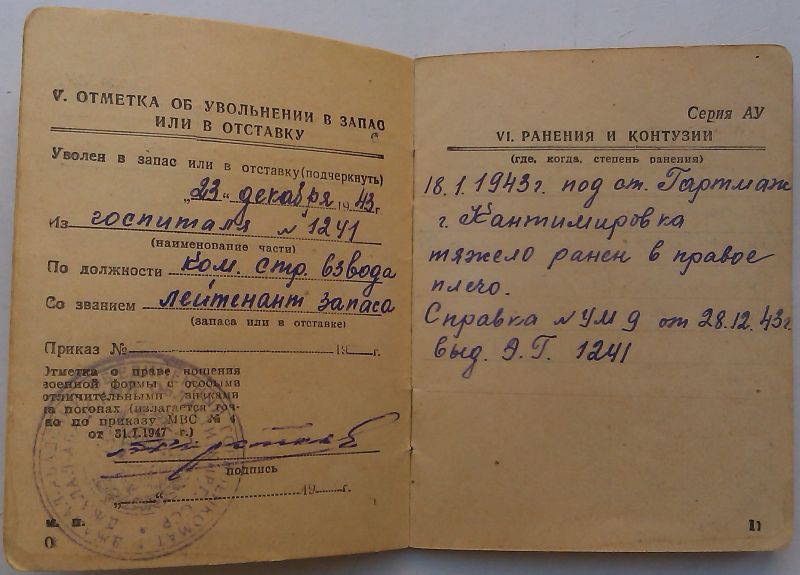 V. ОТМЕТКА ОБ УВОЛЬНЕНИИ В ЗАПАС
ИЛИ В ОТСТАВКУ
Уволен в запас или в отставку (подчеркнуть)
„23“ декабря 1943 г.
Из госпиталя № 1241
(наименование части)
По должности ком. стр. взвода
Со званием лейтенант запаса
(запаса или в отставке)
Приказ № 19 г.
Отметка о праве ношения
военной формы с особыми
отличительными знаками
на погонах (излагается точ-
но по приказу МВС № 4
от 31.I.1947 г.)
подпись
„ “ 19 г.
м. п.
0
Серия АУ
VI. РАНЕНИЯ И КОНТУЗИИ
(где, когда, степень ранения)
18.1.1943 г. под ст. Гартмаж
г. Кантимировка
тяжело ранен в правое
плечо.
Справка № УМ 9 от 28.12.43 г.
выд. Э.Г. 1241
11